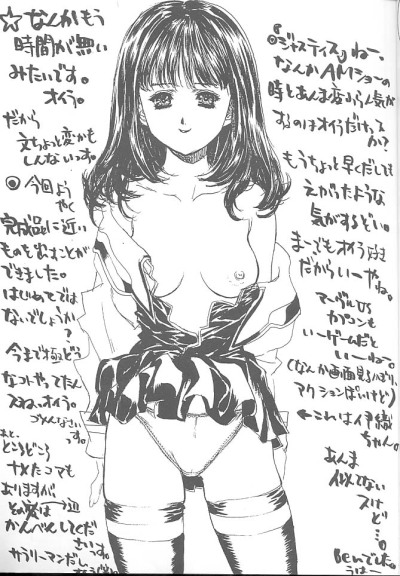 ☆なんかもう
時間が無い
みたいです。
オイラ。
だから
文ちょっと変かも
しんないっす。
◎今回よう
やく
完成品に近い
ものを出すことが
できました。
はじめてでは
ないでしょうか?
今まで極どう
なつトやってたん
スね、オイラ。
ごめんなさい
っす。
あと、
どころどころ
ナメたコマも
ありますが、
かんべんしてくだ
さいっす。
サラリーマンだし
『ジャスティス』ねー、
なんかAMショーの
時とあんま変ふらん気が
するのはオイラだけっス
か?
もうちょっと早くだしても
えがったような
気がするどい。
まーでもオイラ好き
だからいーやね。
マーヴルVS
カプコンも
いーゲームだと
いーねー。
(なんか画面見るばより、
アクションぽいけど)
←これは伊織
ちゃん。
あんま
似てない
スけ
ど…。
Benでした。
うはー